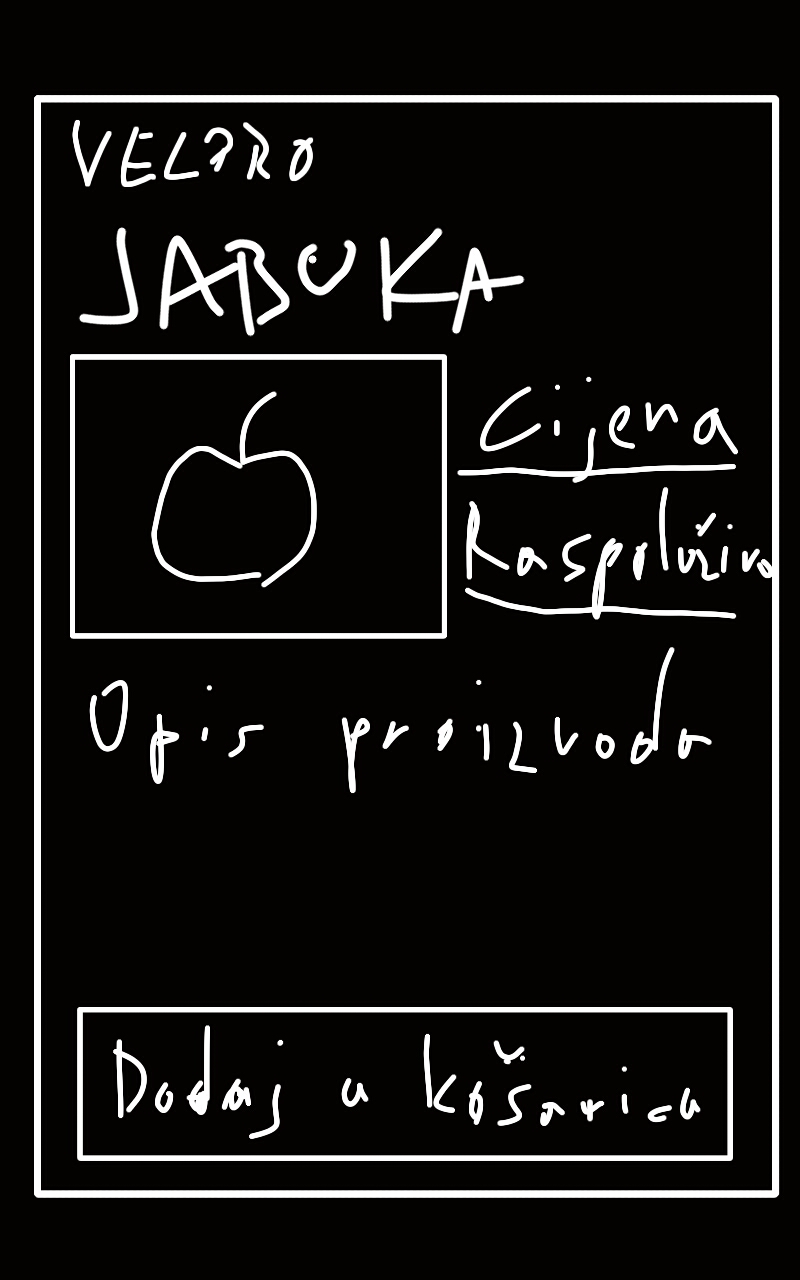 VELPRO
JABUKA
Cijena
Raspoloživo
Opis proizvoda
Dodaj u košaricu